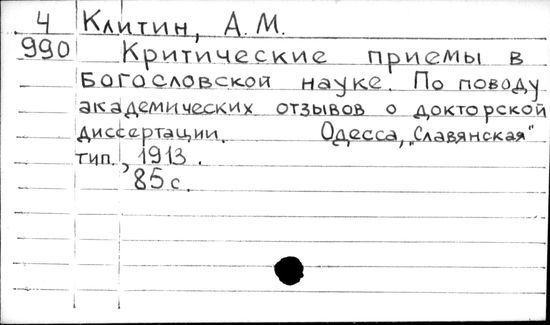 4 Клитин, А. М.
990 Критические приемы в
богословской науке. По поводу
академических отзывов о докторской
диссертации. Одесса, „Славянская"
тип., 1913.
85 с.